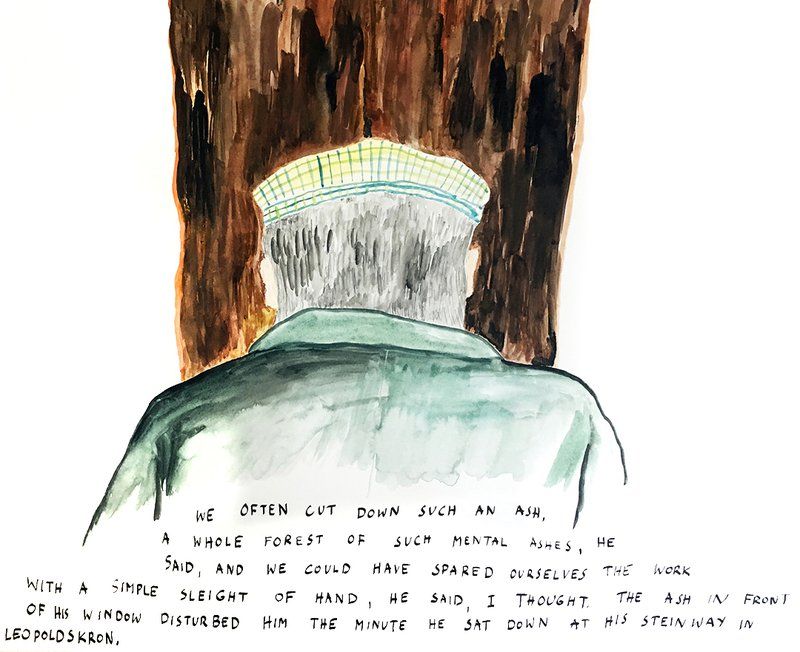 WE OFTEN CUT DOWN SUCH AN ASH,
A WHOLE FOREST OF SUCH MENTAL ASHES, HE
SAID, AND WE COULD HAVE SPARED OURSELVES THE WORK
WITH A SIMPLE SLEIGHT OF HAND, HE SAID, I THOUGHT. THE ASH IN FRONT
OF HIS WINDOW DISTURBED HIM THE MINUTE HE SAT DOWN AT HIS STEINWAY IN
LEOPOLDSKRON.